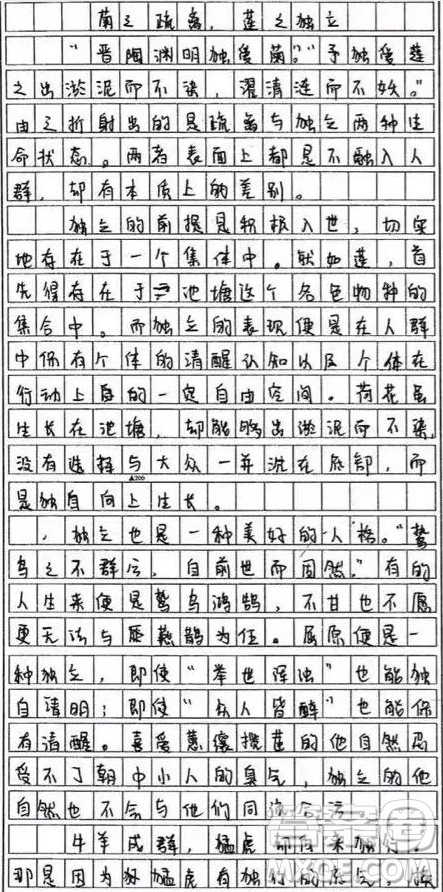 菊之疏离，莲之独立
“晋陶渊明独爱菊。”予独爱莲
之出淤泥而不染，濯清涟而不妖。”
由之折射出的是疏离与独立两种生
命状态。两者表面上都是不融入人
群，却有本质上的差别。
独立的前提是积极入世，切实
地存在于一个集体中。就如莲，首
先得存在于池塘这个各色物种的
集合中。而独立的表现便是在人群
中保有个体的清醒认知以及个体在
行动上的一定自由空间。荷花虽
生长在池塘，却能够出淤泥而不染，
没有选择与大众一并沉在底部，而
▲200
是独自向上生长。
独立也是一种美好的人格。“鸷
鸟之不群兮，自前世而固然。”有的
人生来便是鸷鸟鸿鹄，不甘也不愿
更无法与燕鹊为伍。屈原便是一
种独立，即使“举世浑浊”也能独
自清明；即使“众人皆醉”也能保
有清醒。喜爱蕙纕揽茝的他自然忍
受不了朝中小人的臭气，独立的他
自然也不会与他们同流合污
牛羊成群，猛虎却向来独行，
那是因为猛虎有独行的底气，
答案圈
MXQE.COM